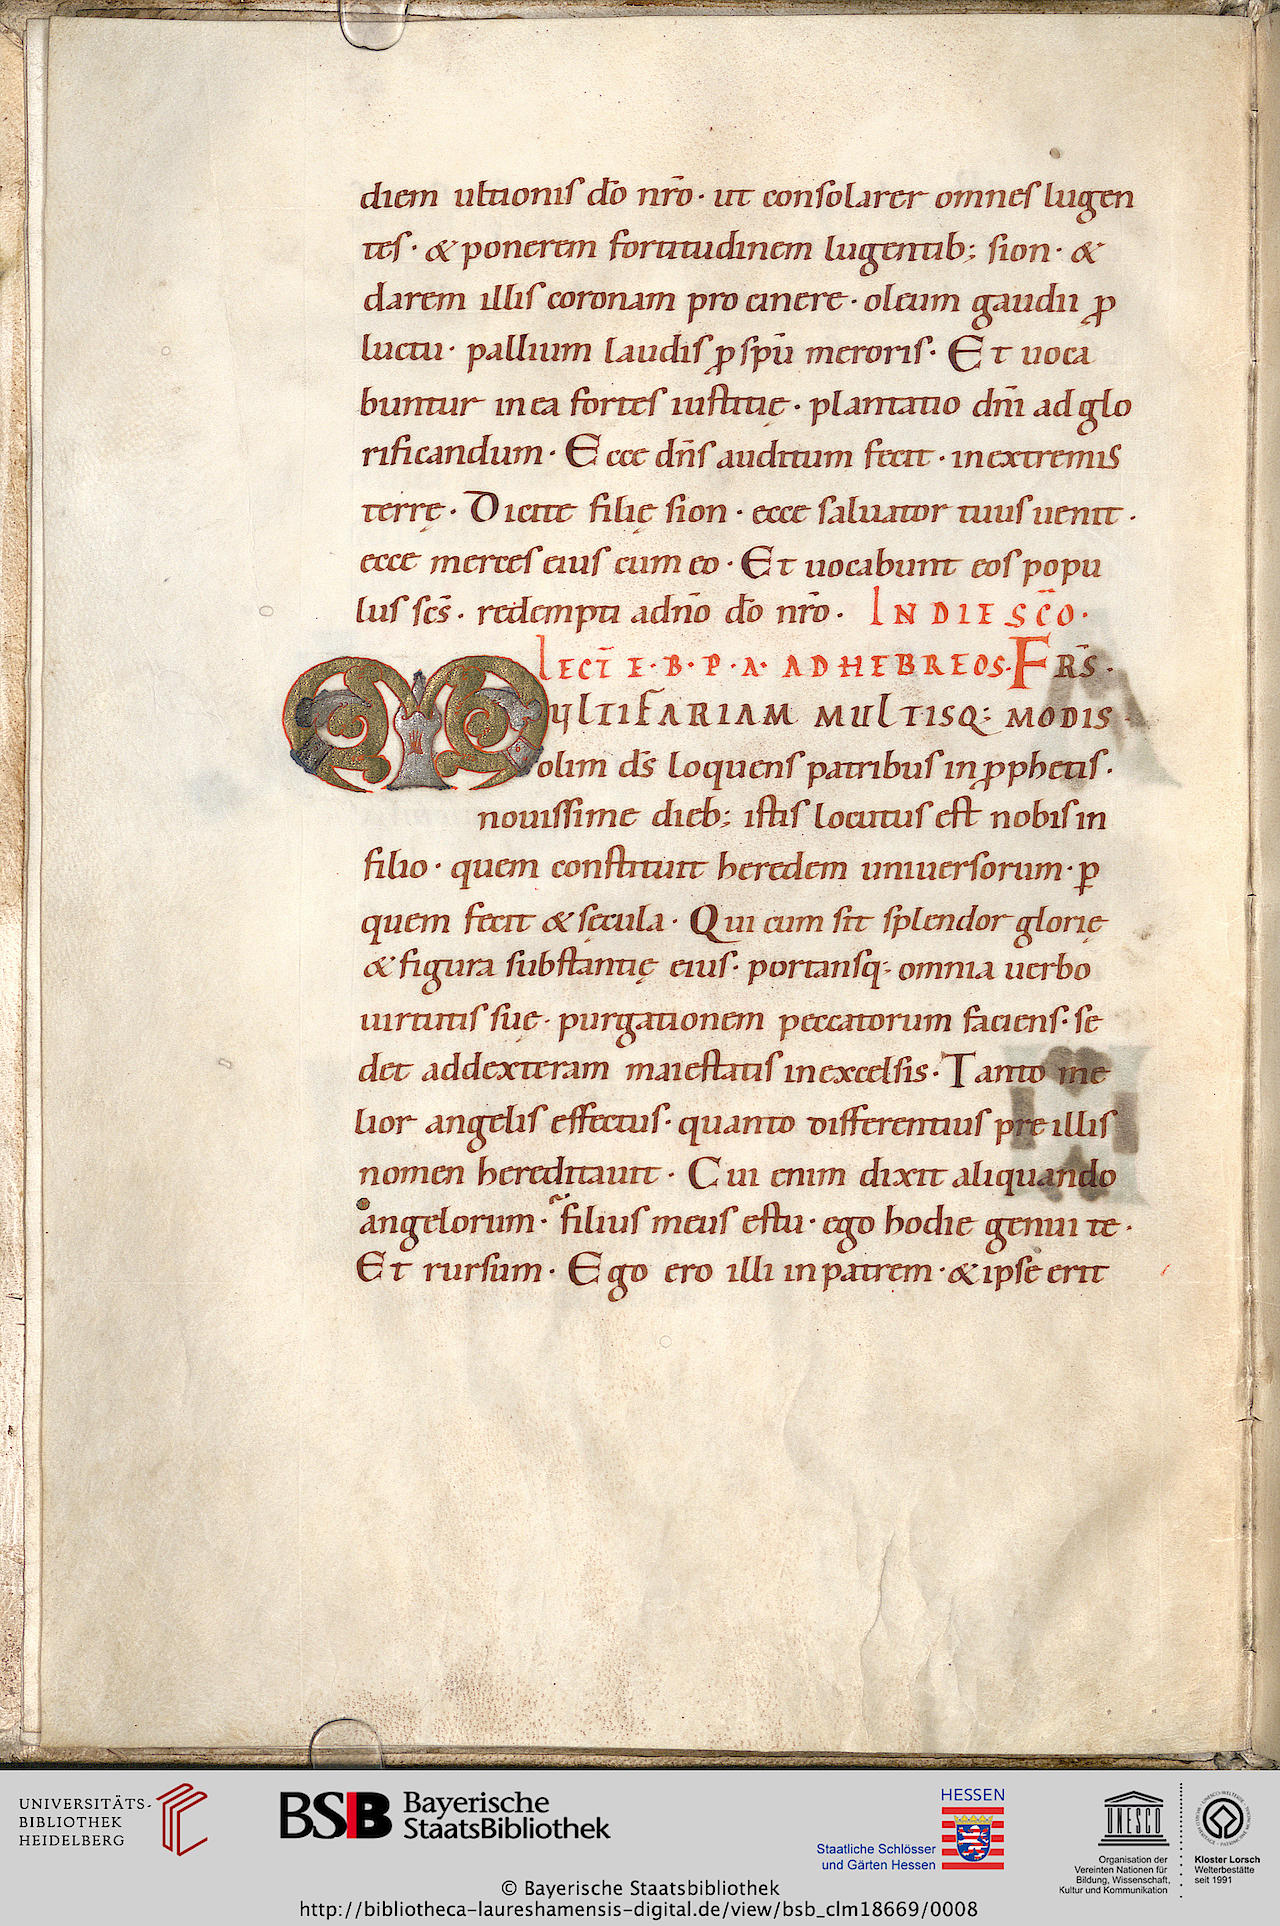 diem ultionis dō nr̄o · ut consolarer omnes lugen
tes · & ponerem fortitudinem lugentib; sion · &
darem illis coronam pro cinere · oleum gaudii ꝓ
luctu · pallium laudis ꝓ spū meroris · Et uoca
buntur in ea fortes iustitię · plantatio dn̄i ad glo
rificandum · Ecce dn̄s auditum fecit · in extremis
terrę · Dicite filię sion · ecce saluator tuus uenit ·
ecce merces eius cum eo · Et uocabunt eos popu
lus scs̄ · redempti a dn̄o dō nr̄o · IN DIE SC̄O ·
LECT̄ E · B · P · A · AD HEBREOS · FRS̄ ·
MULTIFARIAM MULTISQ; MODIS
olim ds̄ loquens patribus in ꝓphetis ·
nouissime dieb; istis locutus est nobis in
filio · quem constituit heredem uniuersorum · ꝑ
quem fecit & sęcula · Qui cum sit splendor glorię
& figura substantię eius · portansq; omnia uerbo
uirtutis suę · purgationem peccatorum faciens · se
det ad dexteram maiestatis in excelsis · Tanto me
lior angelis effectus · quanto differentius pre illis
nomen hereditauit · Cui enim dixit aliquando
angelorum · filius meus es tu · ego hodie genui te ·
Et rursum · Ego ero illi in patrem · & ipse erit
UNIVERSITÄTS-
BIBLIOTHEK
HEIDELBERG
BSB Bayerische
StaatsBibliothek
HESSEN
Staatliche Schlösser
und Gärten Hessen
UNESCO
Organisation der
Vereinten Nationen für
Bildung, Wissenschaft,
Kultur und Kommunikation
Kloster Lorsch
Welterbestätte
seit 1991
© Bayerische Staatsbibliothek
http://bibliotheca-laureshamensis-digital.de/view/bsb_clm18669/0008